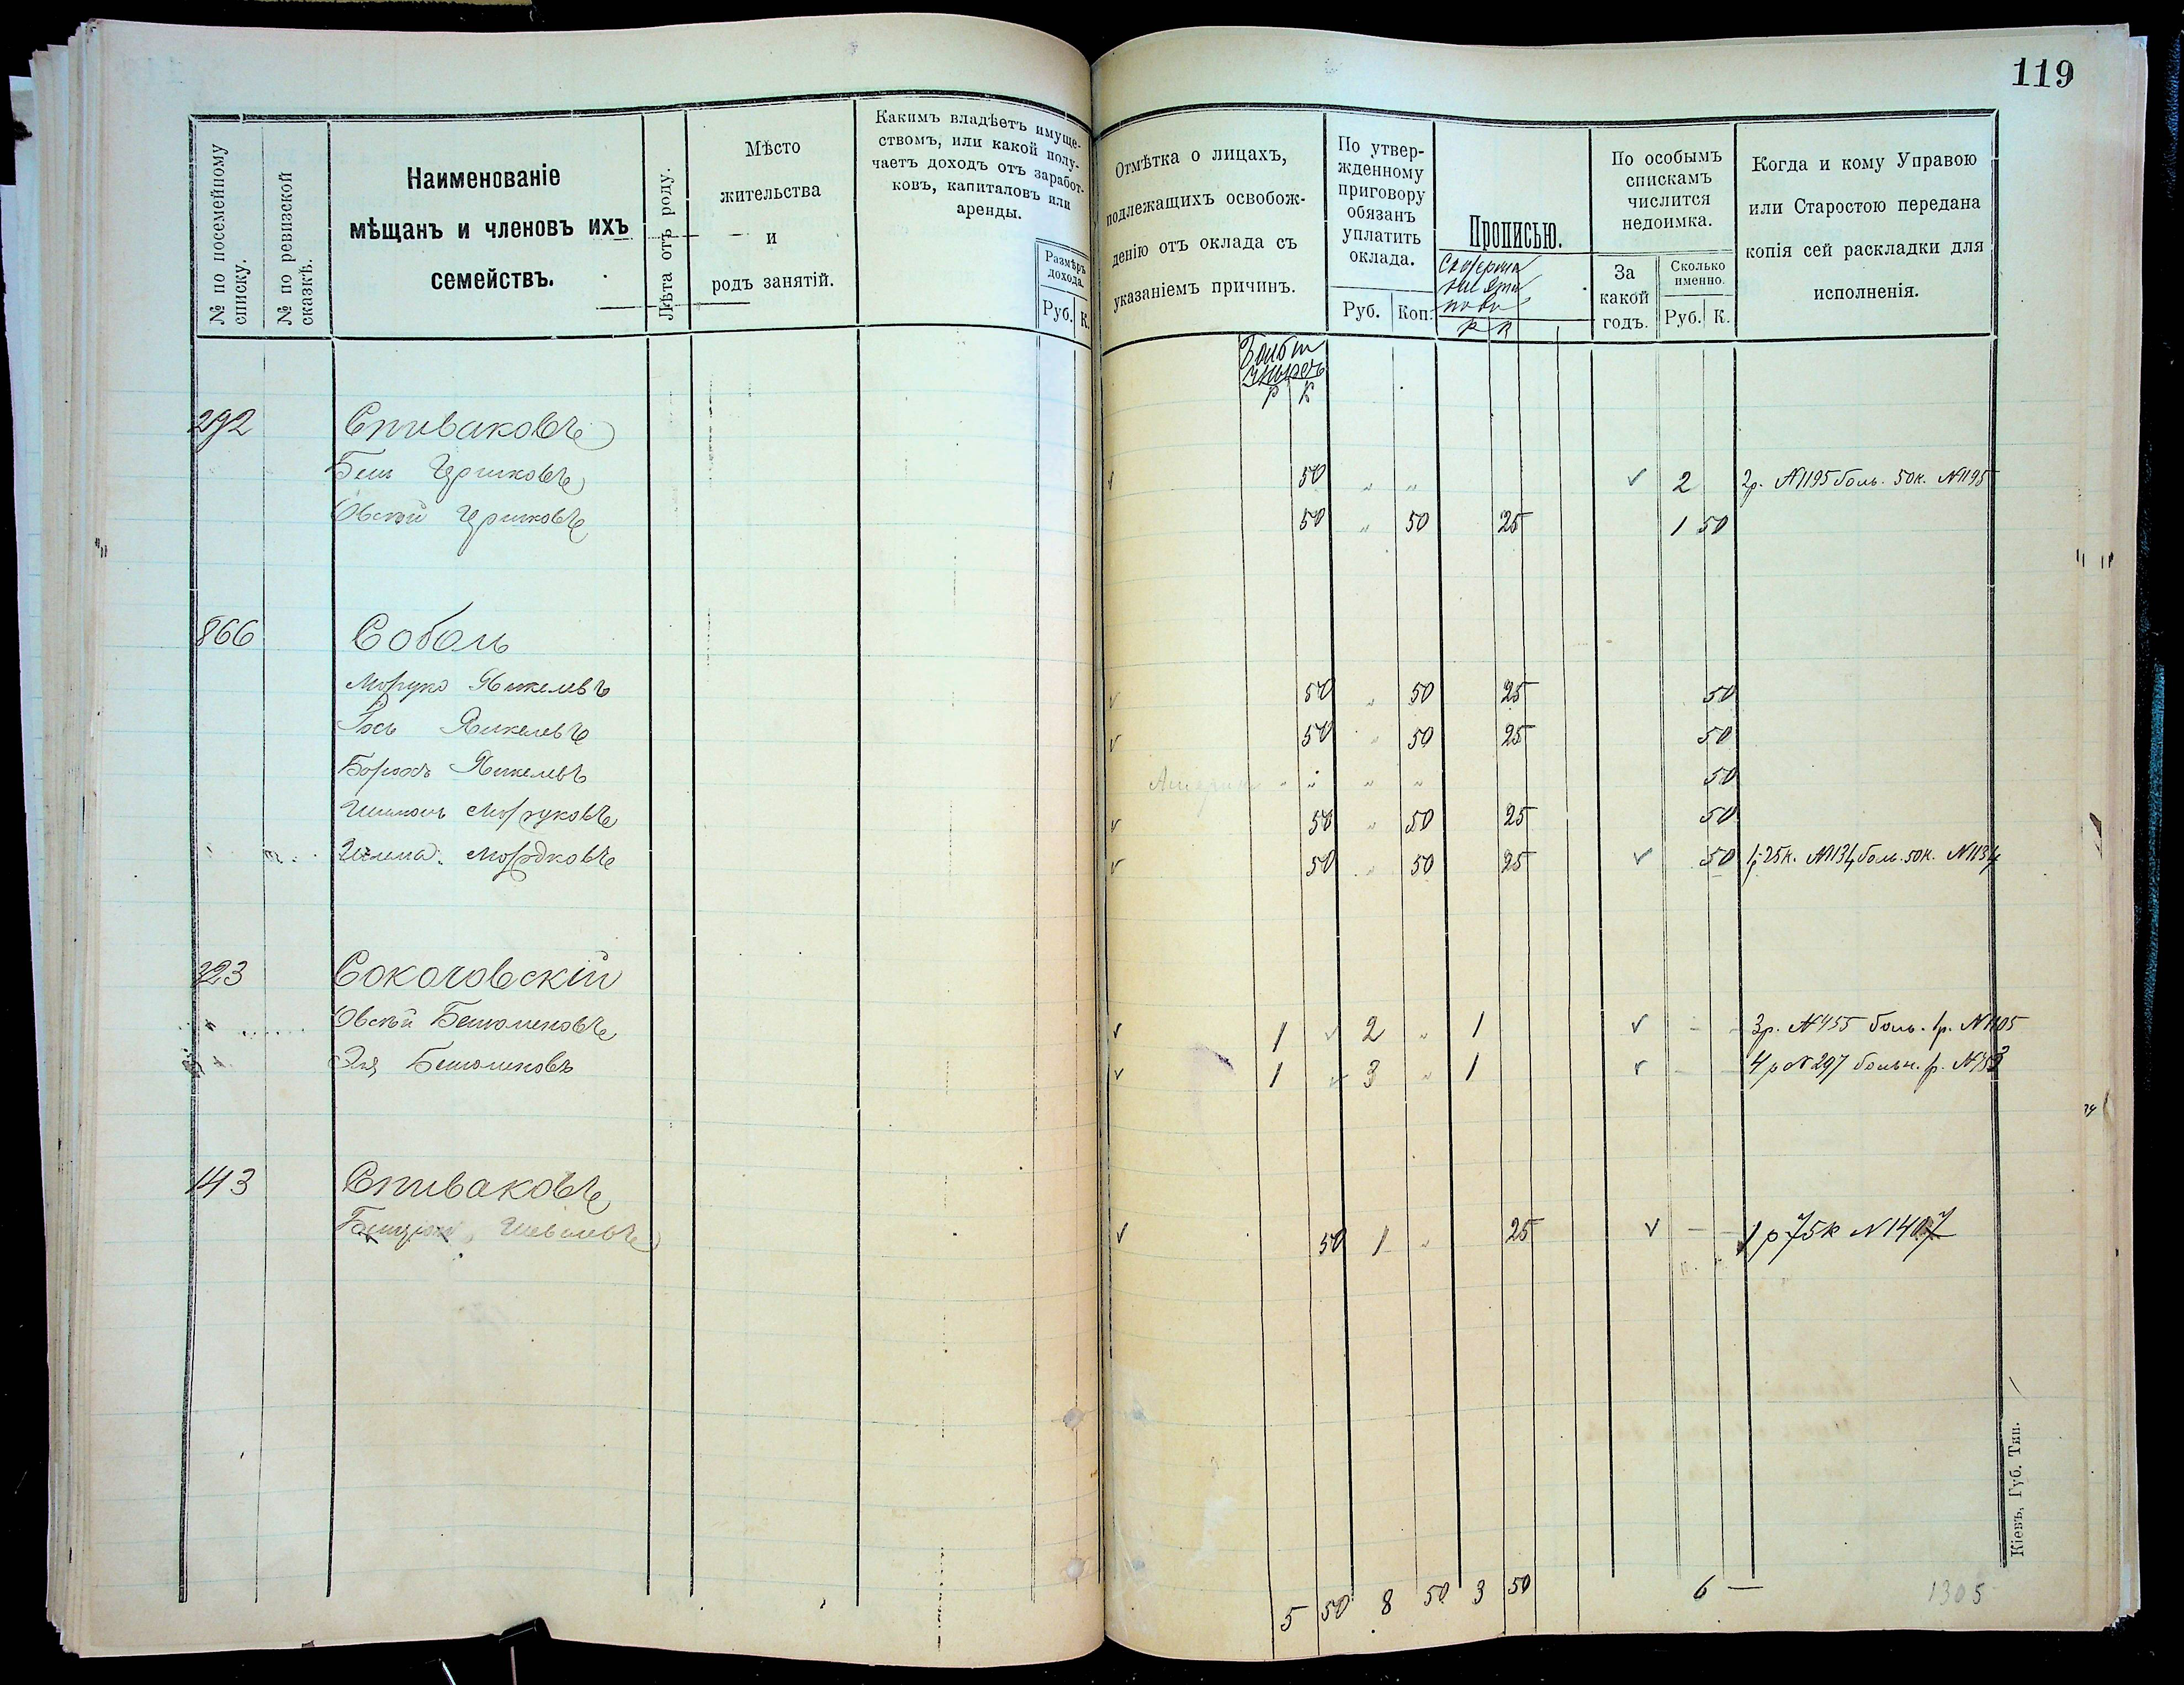 119
№ по посемейному списку.
№ по ревизской сказкѣ.
Наименованіе
мѣщанъ и членовъ ихъ
семействъ.
Лѣта отъ роду.
Мѣсто
жительства
и
родъ занятій.
Какимъ владѣетъ имуще-
ствомъ, или какой полу-
чаетъ доходъ отъ заработ-
ковъ, капиталовъ или
аренды.
Размѣръ
дохода.
Руб. К.
Отмѣтка о лицахъ,
подлежащихъ освобож-
денію отъ оклада съ
указаніемъ причинъ.
По утвер-
жденному
приговору
обязанъ
уплатить
оклада.
Руб. Коп.
Прописью.
р к
По особымъ
спискамъ
числится
недоимка.
За
какой
годъ.
Сколько
именно.
Руб. К.
Когда и кому Управою
или Старостою передана
копія сей раскладки для
исполненія.
р к
292 Спиваковъ
Бень Ицриковъ 50 " " v 2 2р. №1195 боль. 50к. №1195
Овсей 50 " 50 25 1 50
866 Соболь
Мордко Янкелевъ v 50 " 50 25 50
Іось Янкелевъ v 50 " 50 25 50
Борохъ Янкелевъ Америка " " " " 50
Шимонъ Мордковъ v 50 " 50 25 50
Шлема Мордковъ v 50 " 50 25 v 50 1р 25к. №1134 боль. 50к. №1134
323 Соколовскій
Овсей Беніоминовъ v 1 v 2 " 1 v - - 3р. №455 боль. 1р. №1105
Эля Беніоминовъ v 1 v 3 " 1 v - - 4 р №297 больн. 1р. №753
143 Спиваковъ
Бенціонъ v 50 1 " 25 v - - 1 р 75к №1407
5 50 8 50 3 50 6 —
1305
Кіевъ, Губ. Тип.